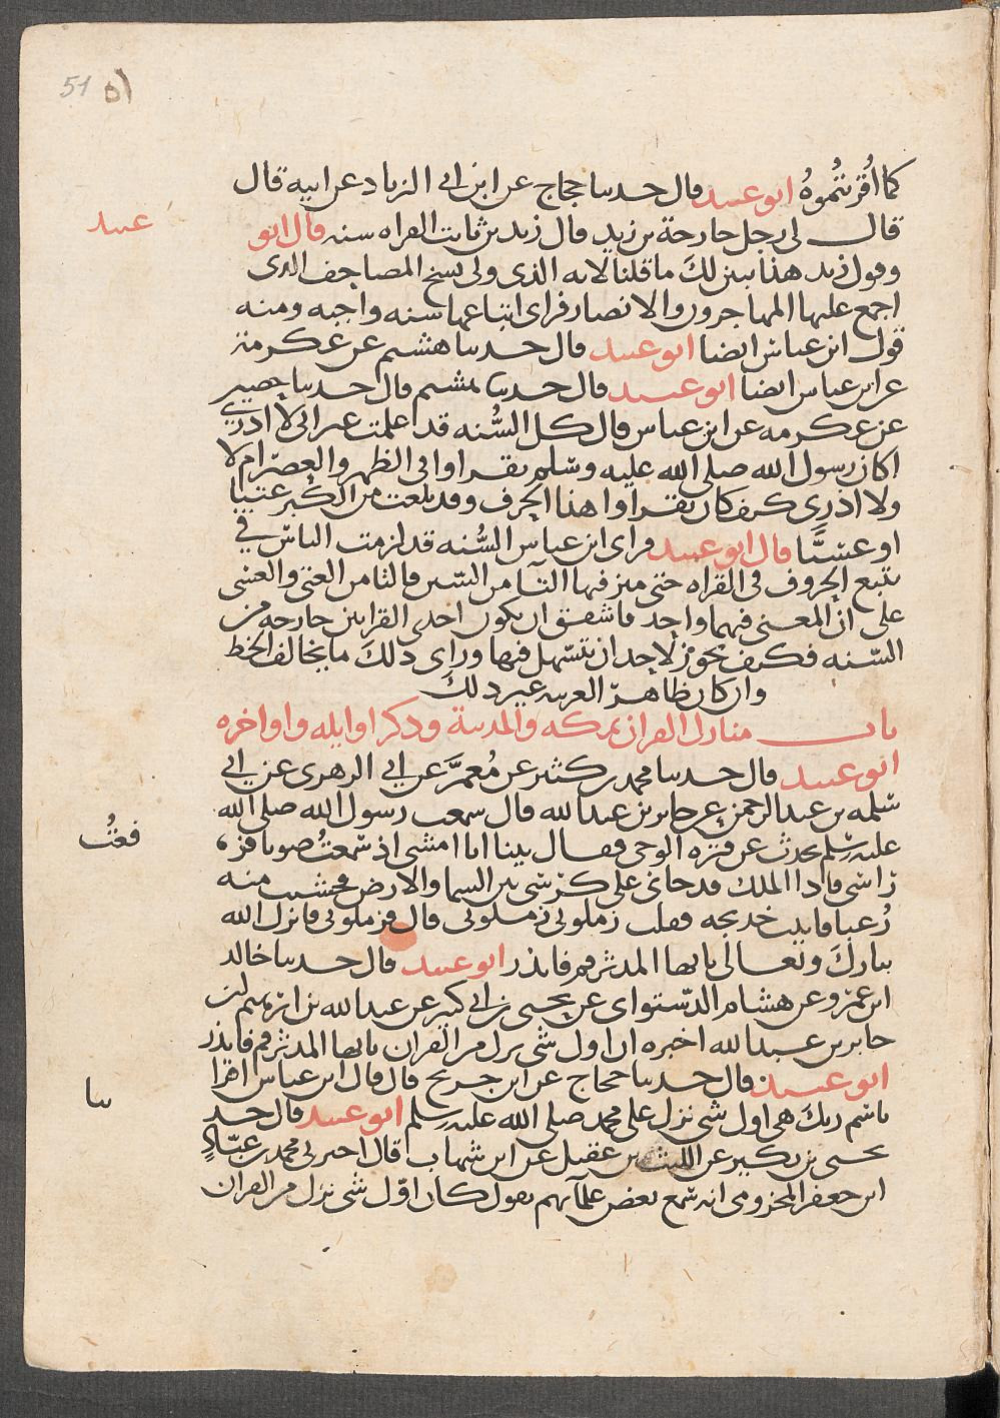 51 ٥١
كما أُقرئتُموهُ ابو عبيد قال حدثنا حجاج عن ابن ابى الزناد عن ابيه قال
قال لى رجل خارجة بن زيد قال زيد بن ثابت القراه سنه قال ابو
عبيد
وقول زيد هذا يبين لك ما قلنا لانه الذى ولى نسخ المصاحف الذى
اجمع عليها المهاجرون والانصار فراى اتباعها سنه واجبه ومنه
قول ابن عباس ايضا ابو عبيد قال حدثنا هشيم عن عكرمة
عن ابن عباس ايضا ابو عبيد قال حدثنا هشيم قال حدثنا حصين
عن عكرمه عن ابن عباس قال كل السُّنه قد علمت غير انى لا ادرى
اكان رسول الله صلى الله عليه وسلم يقراوا فى الظهر والعصر ام لا
ولا ادرى كيف كان يقراوا هذا الحرف وقد بلغت من الكبر عتيا
او عسيًّا قال ابو عبيد فراى ابن عباس السُّنه قد لزمت الناس فى
تتبع الحروف فى القراه حتى ميز فيها التا من السين فالتا من العتى والعسى
على ان المعنى فيهما واحد فاشفق ان يكون احدى القراتين خارجه من
السنه فكيف يجوز لاحد ان يتسهل فيها وراى ذلك ما يخالف الخط
وان كان ظاهر العربيه غير ذلك
باب منازل القران بمكه والمدينة وذكر اوايله واواخره
ابو عبيد قال حدثنا محمد بن كثير عن مُعمَرَّ عن ابى الزهرى عن ابى
سلمه بن عبد الرحمن عن جابر بن عبد الله قال سمعت رسول الله صلى الله
عليه وسلم يحدث عن فتره الوحى فقال بينا انا امشى اذ سمعتُ صوتا فرفعتُ
راسى فاذا الملك قد جانى على كرسى بين السما والارض فجئثت منه
رُعبا فاتيت خديجه فقلت زملونى زملونى قال فزملونى فانزل الله
تبارك وتعالى يايها المدثر قم فانذر ابو عبيد قال حدثنا خالد
ابن عمرو عن هشام الدستواى عن يحيى بن ابى كثير عن عبد الله بن ابرهيم ان
جابر بن عبد الله اخبره ان اول شى نزل من القران يايها المدثر قم فانذر
ابو عبيد قال حدثنا حجاج عن ابن جريج قال قال ابن عباس اقرا
باسم ربك هى اول شى نزل على محمد صلى الله عليه وسلم ابو عبيد قال حدثنا
يحيى بن بكير عن الليث بن عقيل عن ابن شهاب قال اخبرنى محمد بن عبّادٍ
ابن جعفر المخزومى انه سمع بعض علمائهم يقول كان اوّل شى نزل من القران